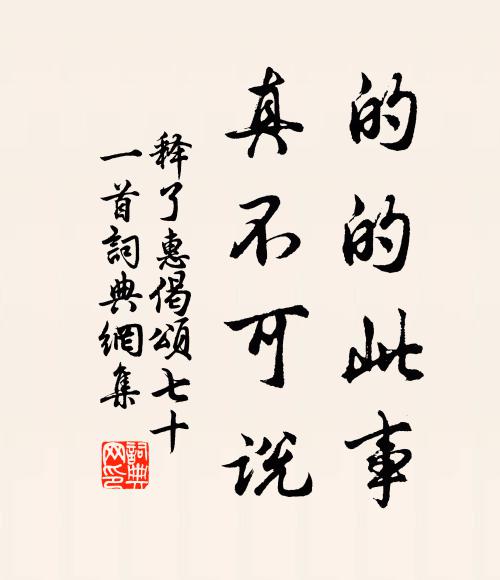 的的此事
真不可说
释了惠偈頌七十
一首詞典網集
詞典
网印